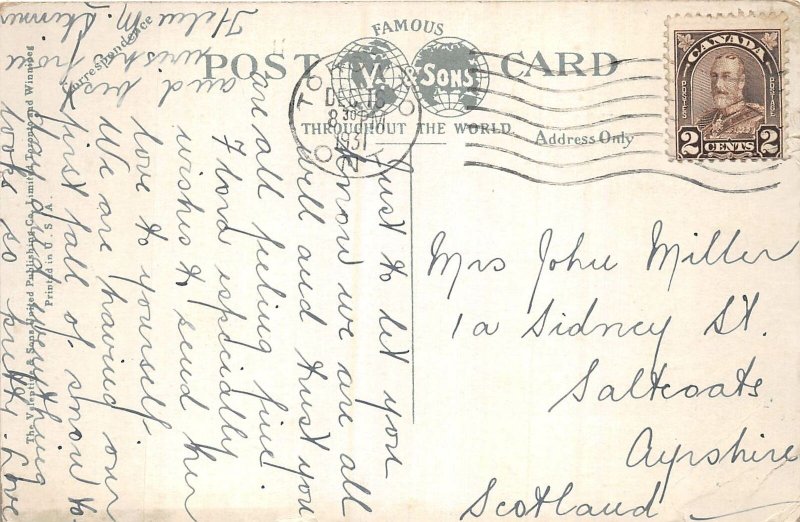 FAMOUS
POST CARD
V. & SONS
THROUGHOUT THE WORLD.
Correspondence
Address Only
DEC 16
8 30 PM
1931
CANADA
POSTES POSTAGE
2 CENTS 2
Just to let you
know we are all
well and trust you
are all feeling fine
especially
wishes to send her
love to yourself
We are having our
first fall of snow to-
day & everything
looks so pretty. Love
and best
wishes from
Helen M. Skinner
Mrs John Miller
1a Sidney St.
Saltcoats
Ayrshire
Scotland
The Valentine & Sons United Publishing Co. Limited, Toronto and Winnipeg
Printed in U.S.A.